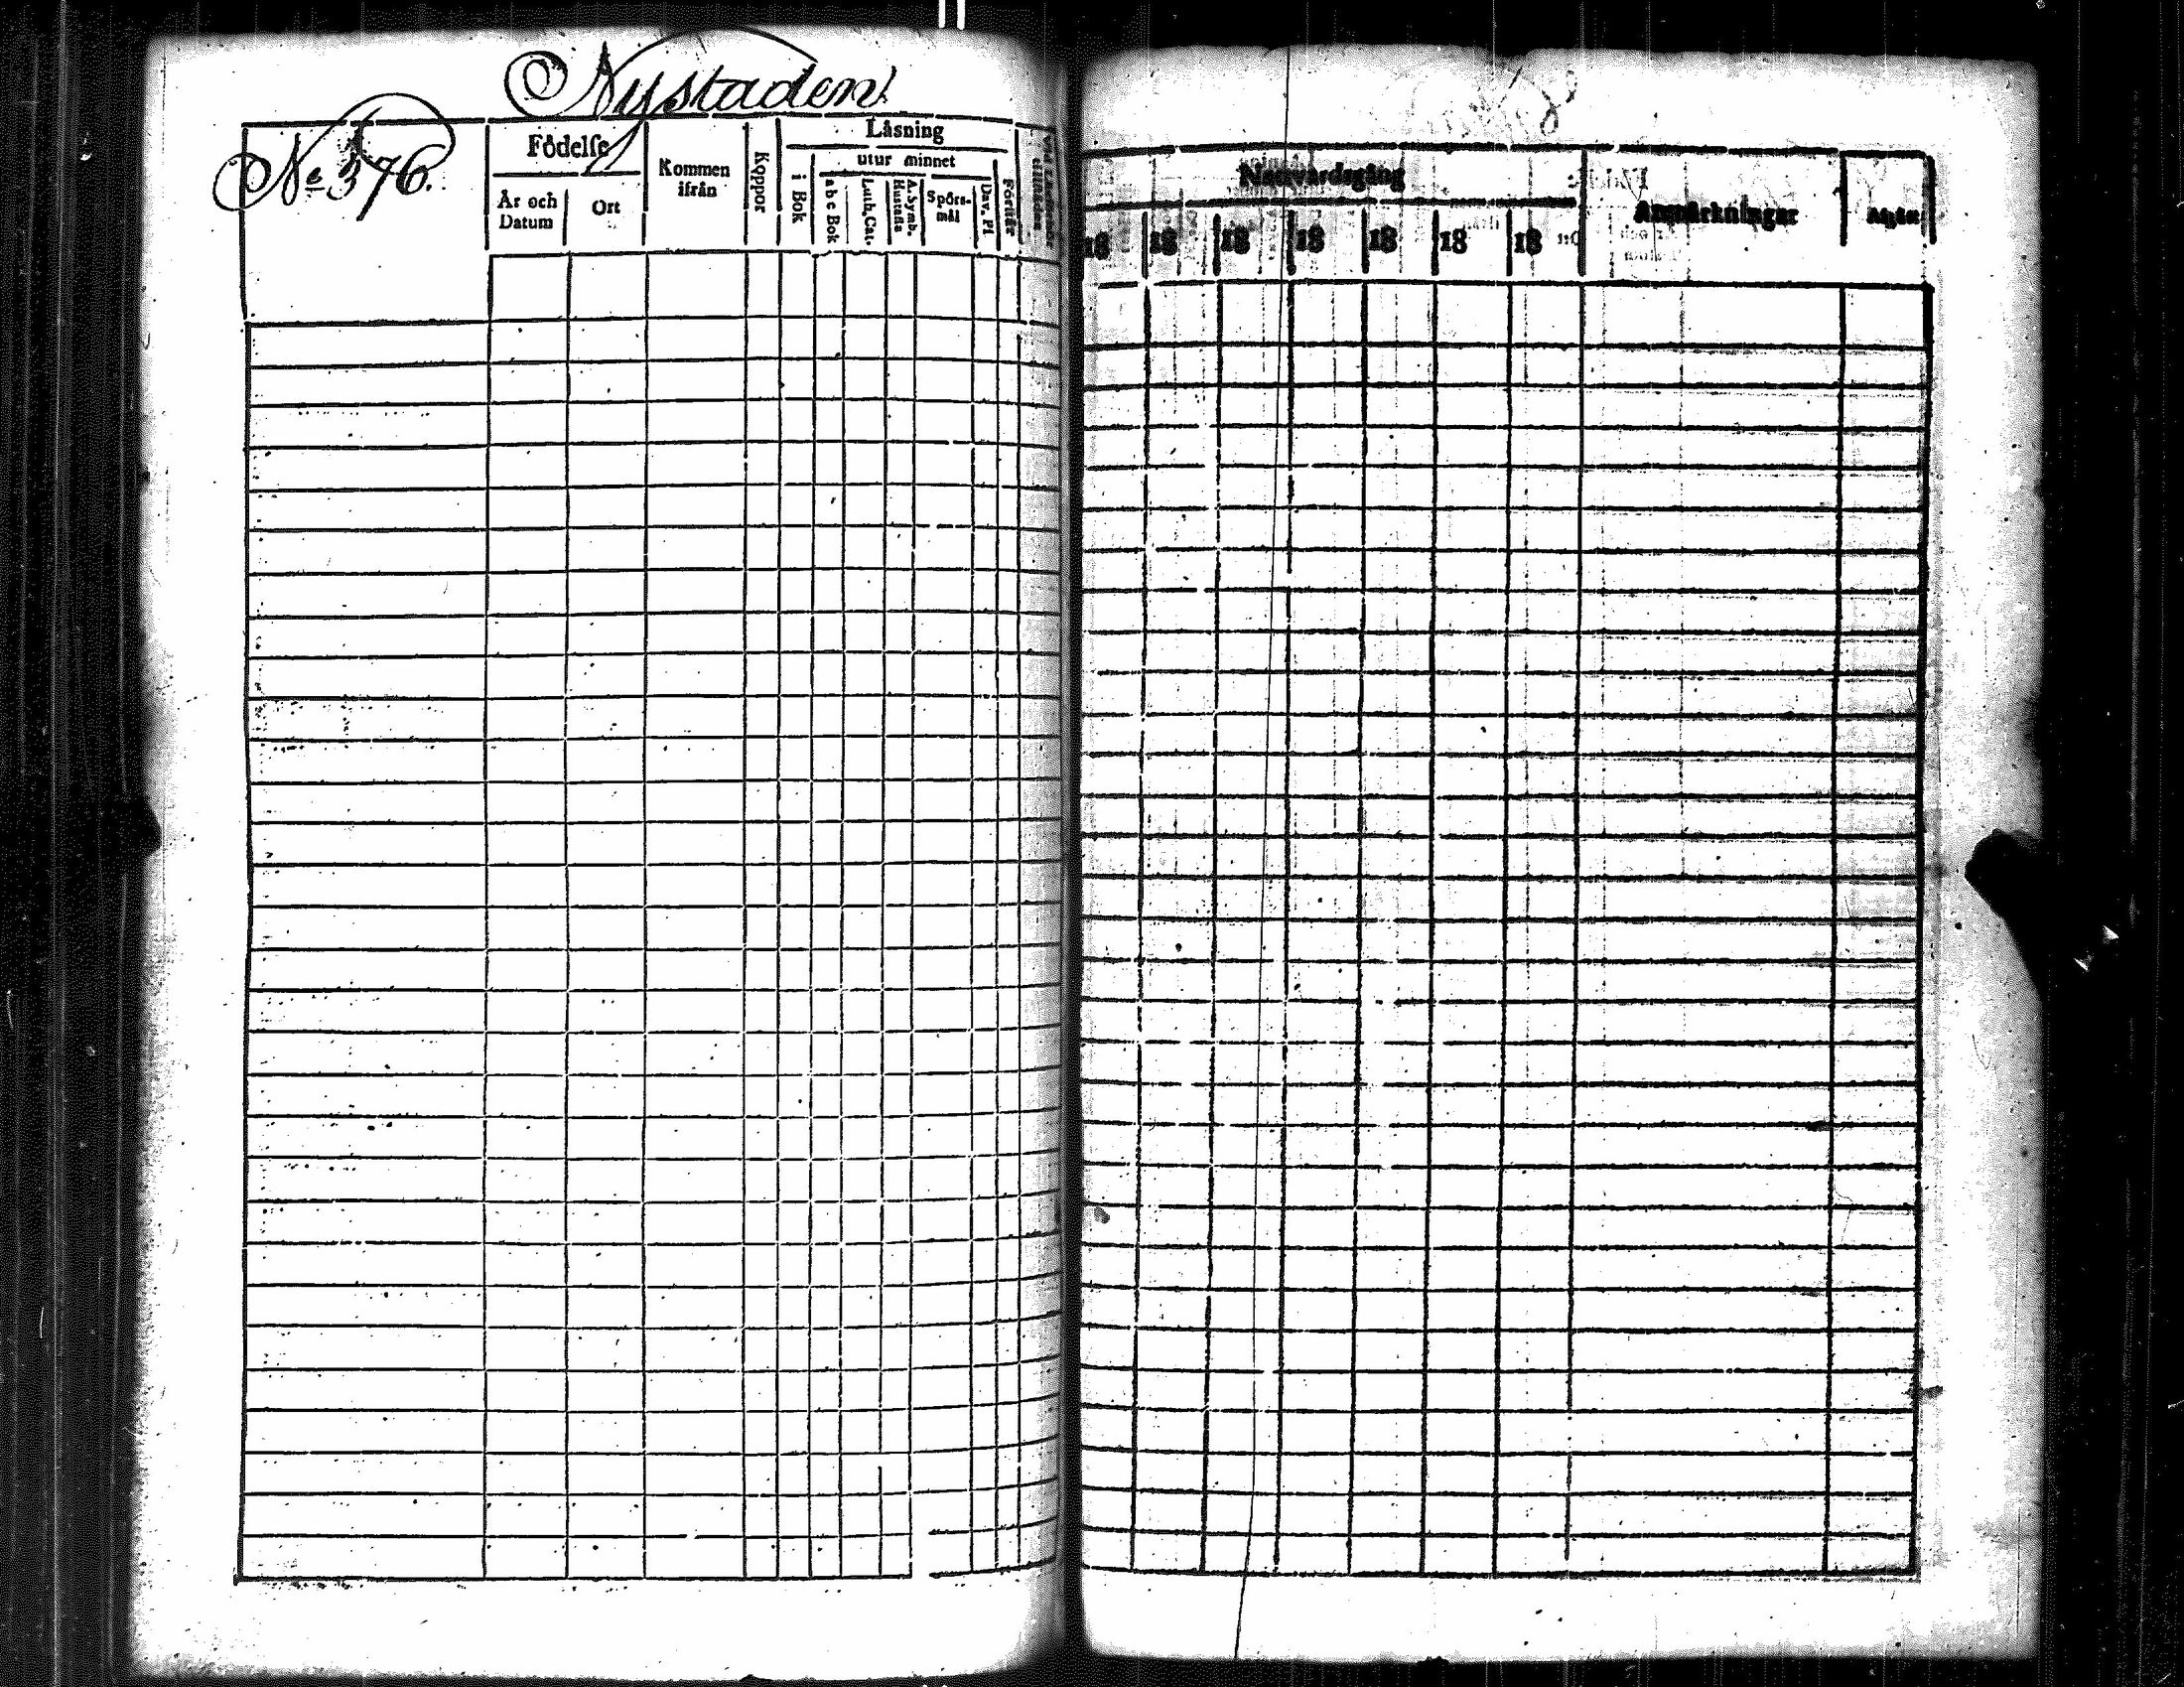 Nystaden
No 376.
Födelse
År och Datum
Ort
Kommen ifrån
Koppor
Läsning
i Bok
utur minnet
a b c Bok
Luth. Cat.
A. Symb. Hustafla
Spörs-mål
Dav. Ps
Förstår
Nattvardsgång
18 18 18 18 18 18 18
Anmärkningar